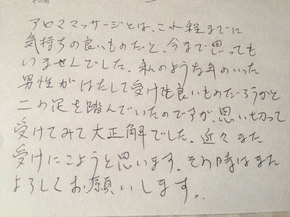 アロママッサージとは、これ程までに
気持ちの良いものだと、今まで思っても
いませんでした。私のような年のいった
男性がはたして受けて良いものだろうかと
二の足を踏んでいたのですが、思い切って
受けてみて大正解でした。近々また
受けにこようと思います。その時はまた
よろしくお願いします。